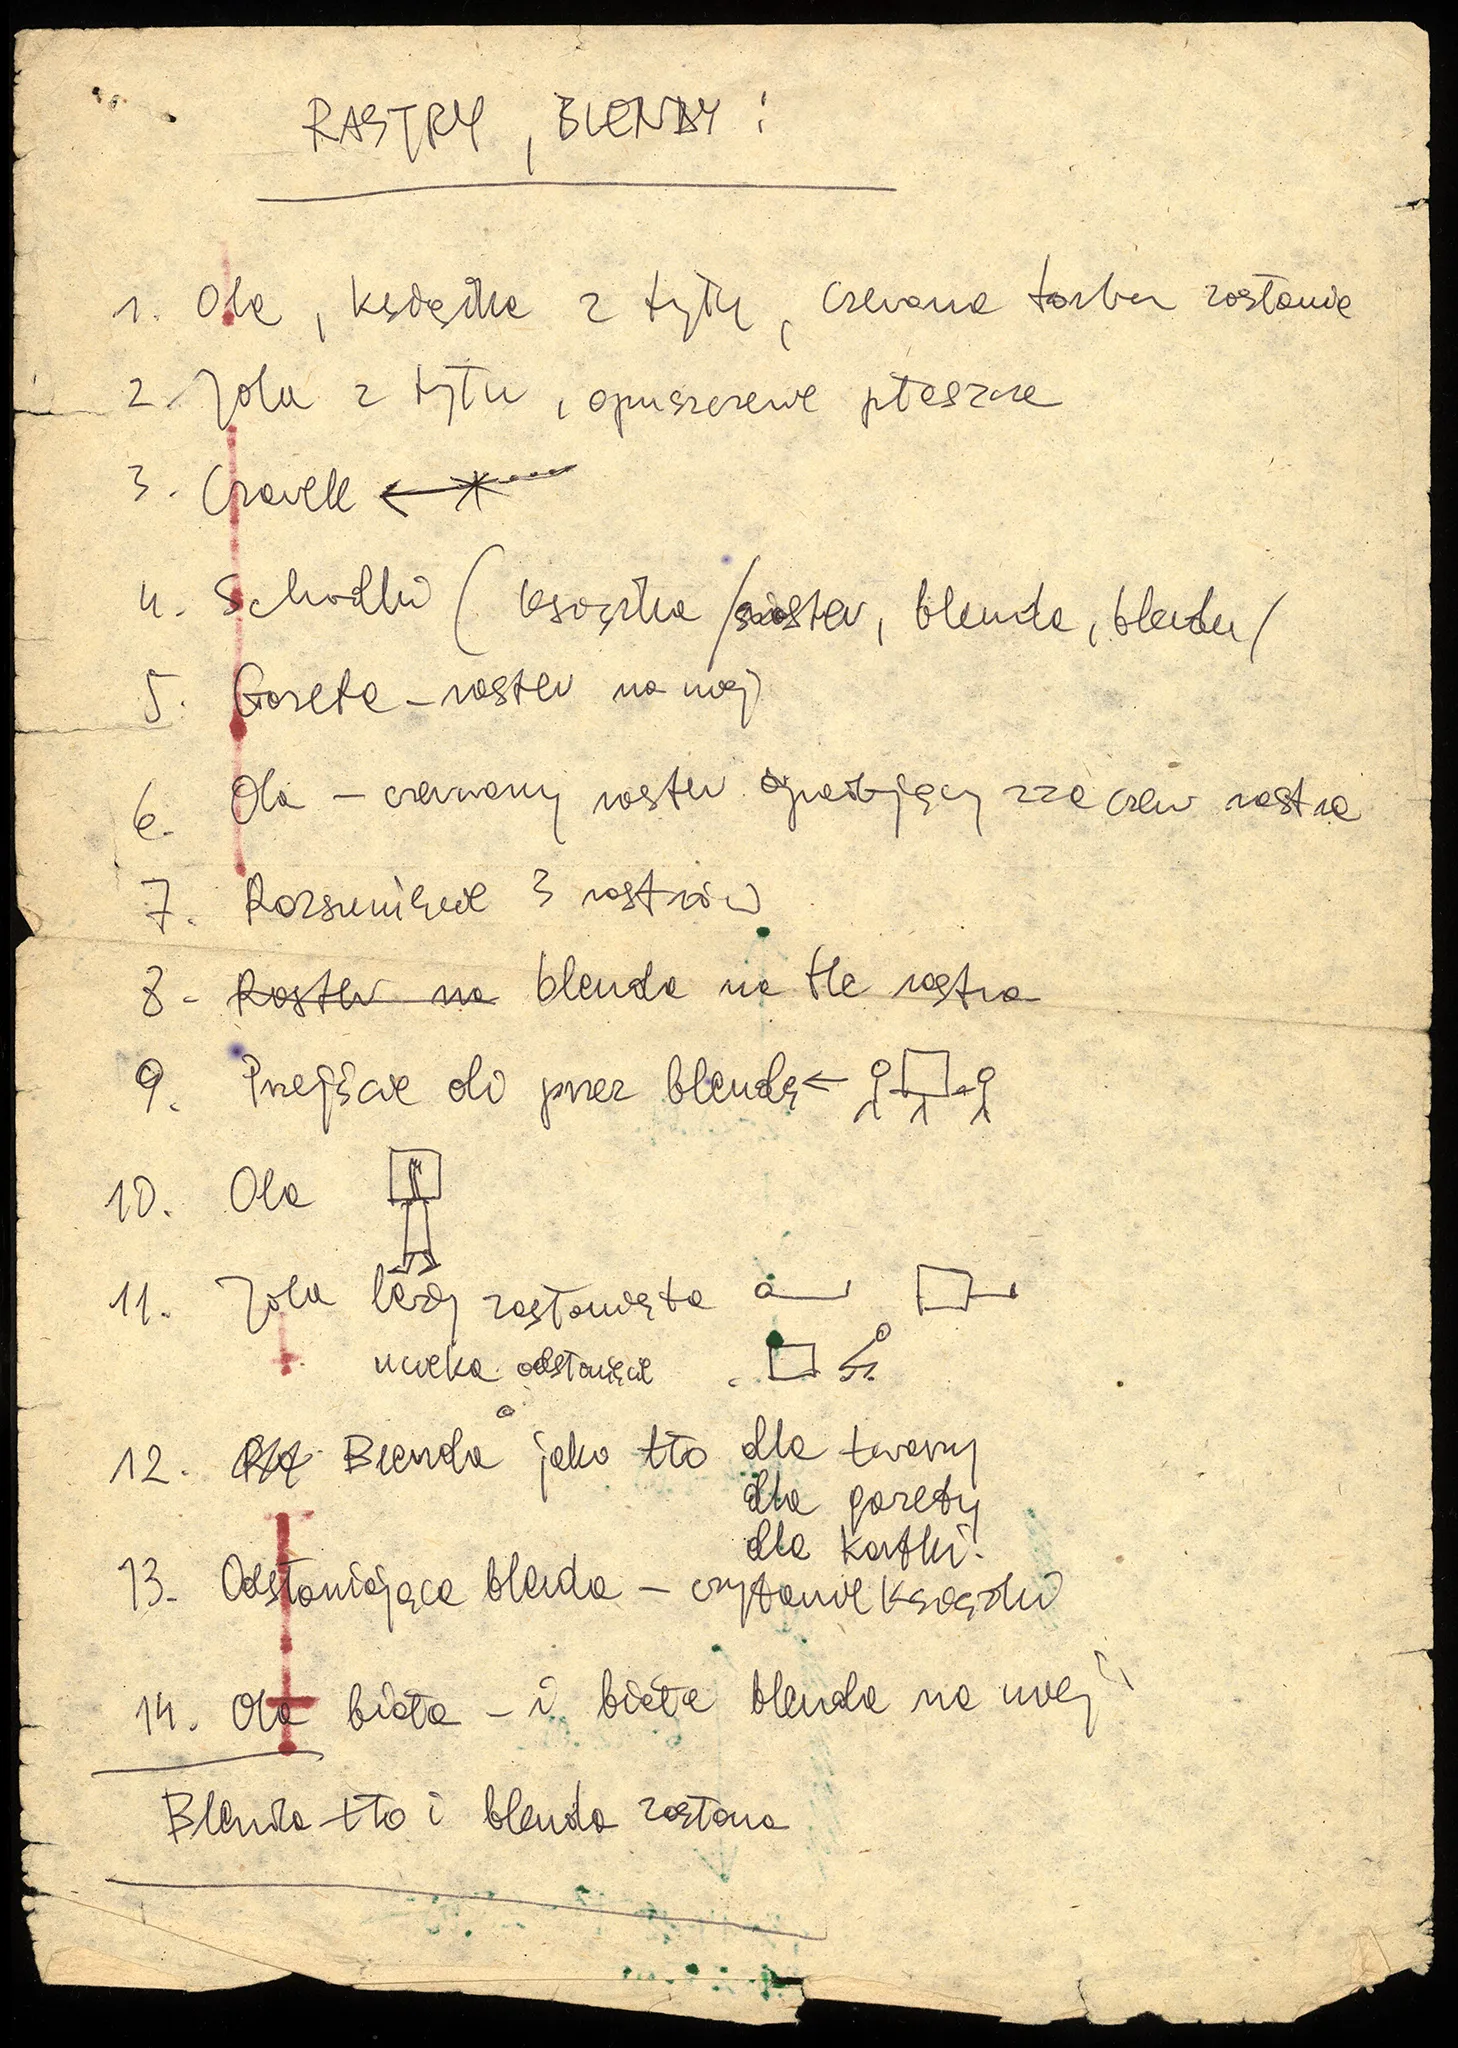 RASTRY, BLENDY:
1. Ola, książka z tyłu, czerwona torba zasłania
2. Jola z tyłu, opuszczenie płaszcza
3. Czarek
4. Schodki (książka / raster, blenda, blenda /
5. Gazeta – raster na niej
6. Ola – czerwony raster zza czerw rastra
7. Rozsunięcie 3 rastrów
8 - Raster na blenda na tle rastra
9. Przejście oli przez blendę
10. Ola
11. Jola leży zasłonięta
ucieka odsłonięcie
12. Blenda jako tło dla twarzy
dla gazety
dla kartki.
13. Odsłaniająca blenda – czytanie książki
14. Ola biała – i biała blenda na niej
Blenda tło i blenda zasłona